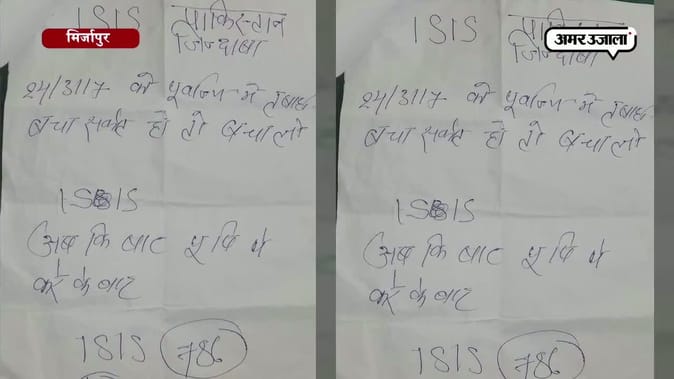 मिर्जापुर
अमर उजाला
ISIS पाकिस्तान
जिन्दाबा
24/3/17 को पूर्वांचल में तबाही
बचा सकते हो तो बचा लो
ISIS
अब कि बाट यूपि मे
के बाद
ISIS 786
ISIS पाकिस्तान
जिन्दाबा
24/3/17 को में
बचा सकते हो तो बचा लो
ISIS
अब कि बाट यूपि मे
के बाद
ISIS 786